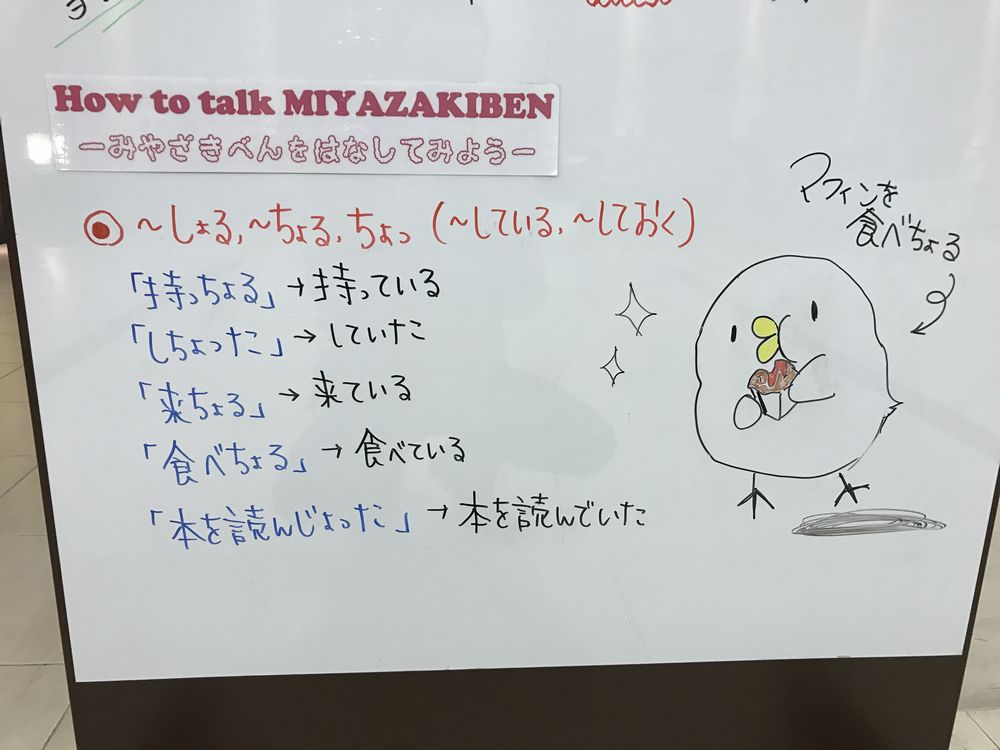 How to talk MIYAZAKIBEN
ーみやざきべんをはなしてみようー
～しょる,～ちょる,ちょっ (～している,～しておく)
「持っちょる」→持っている
「しちょった」→していた
「来ちょる」→来ている
「食べちょる」→食べている
「本を読んじょった」→本を読んでいた
マフィンを
食べちょる